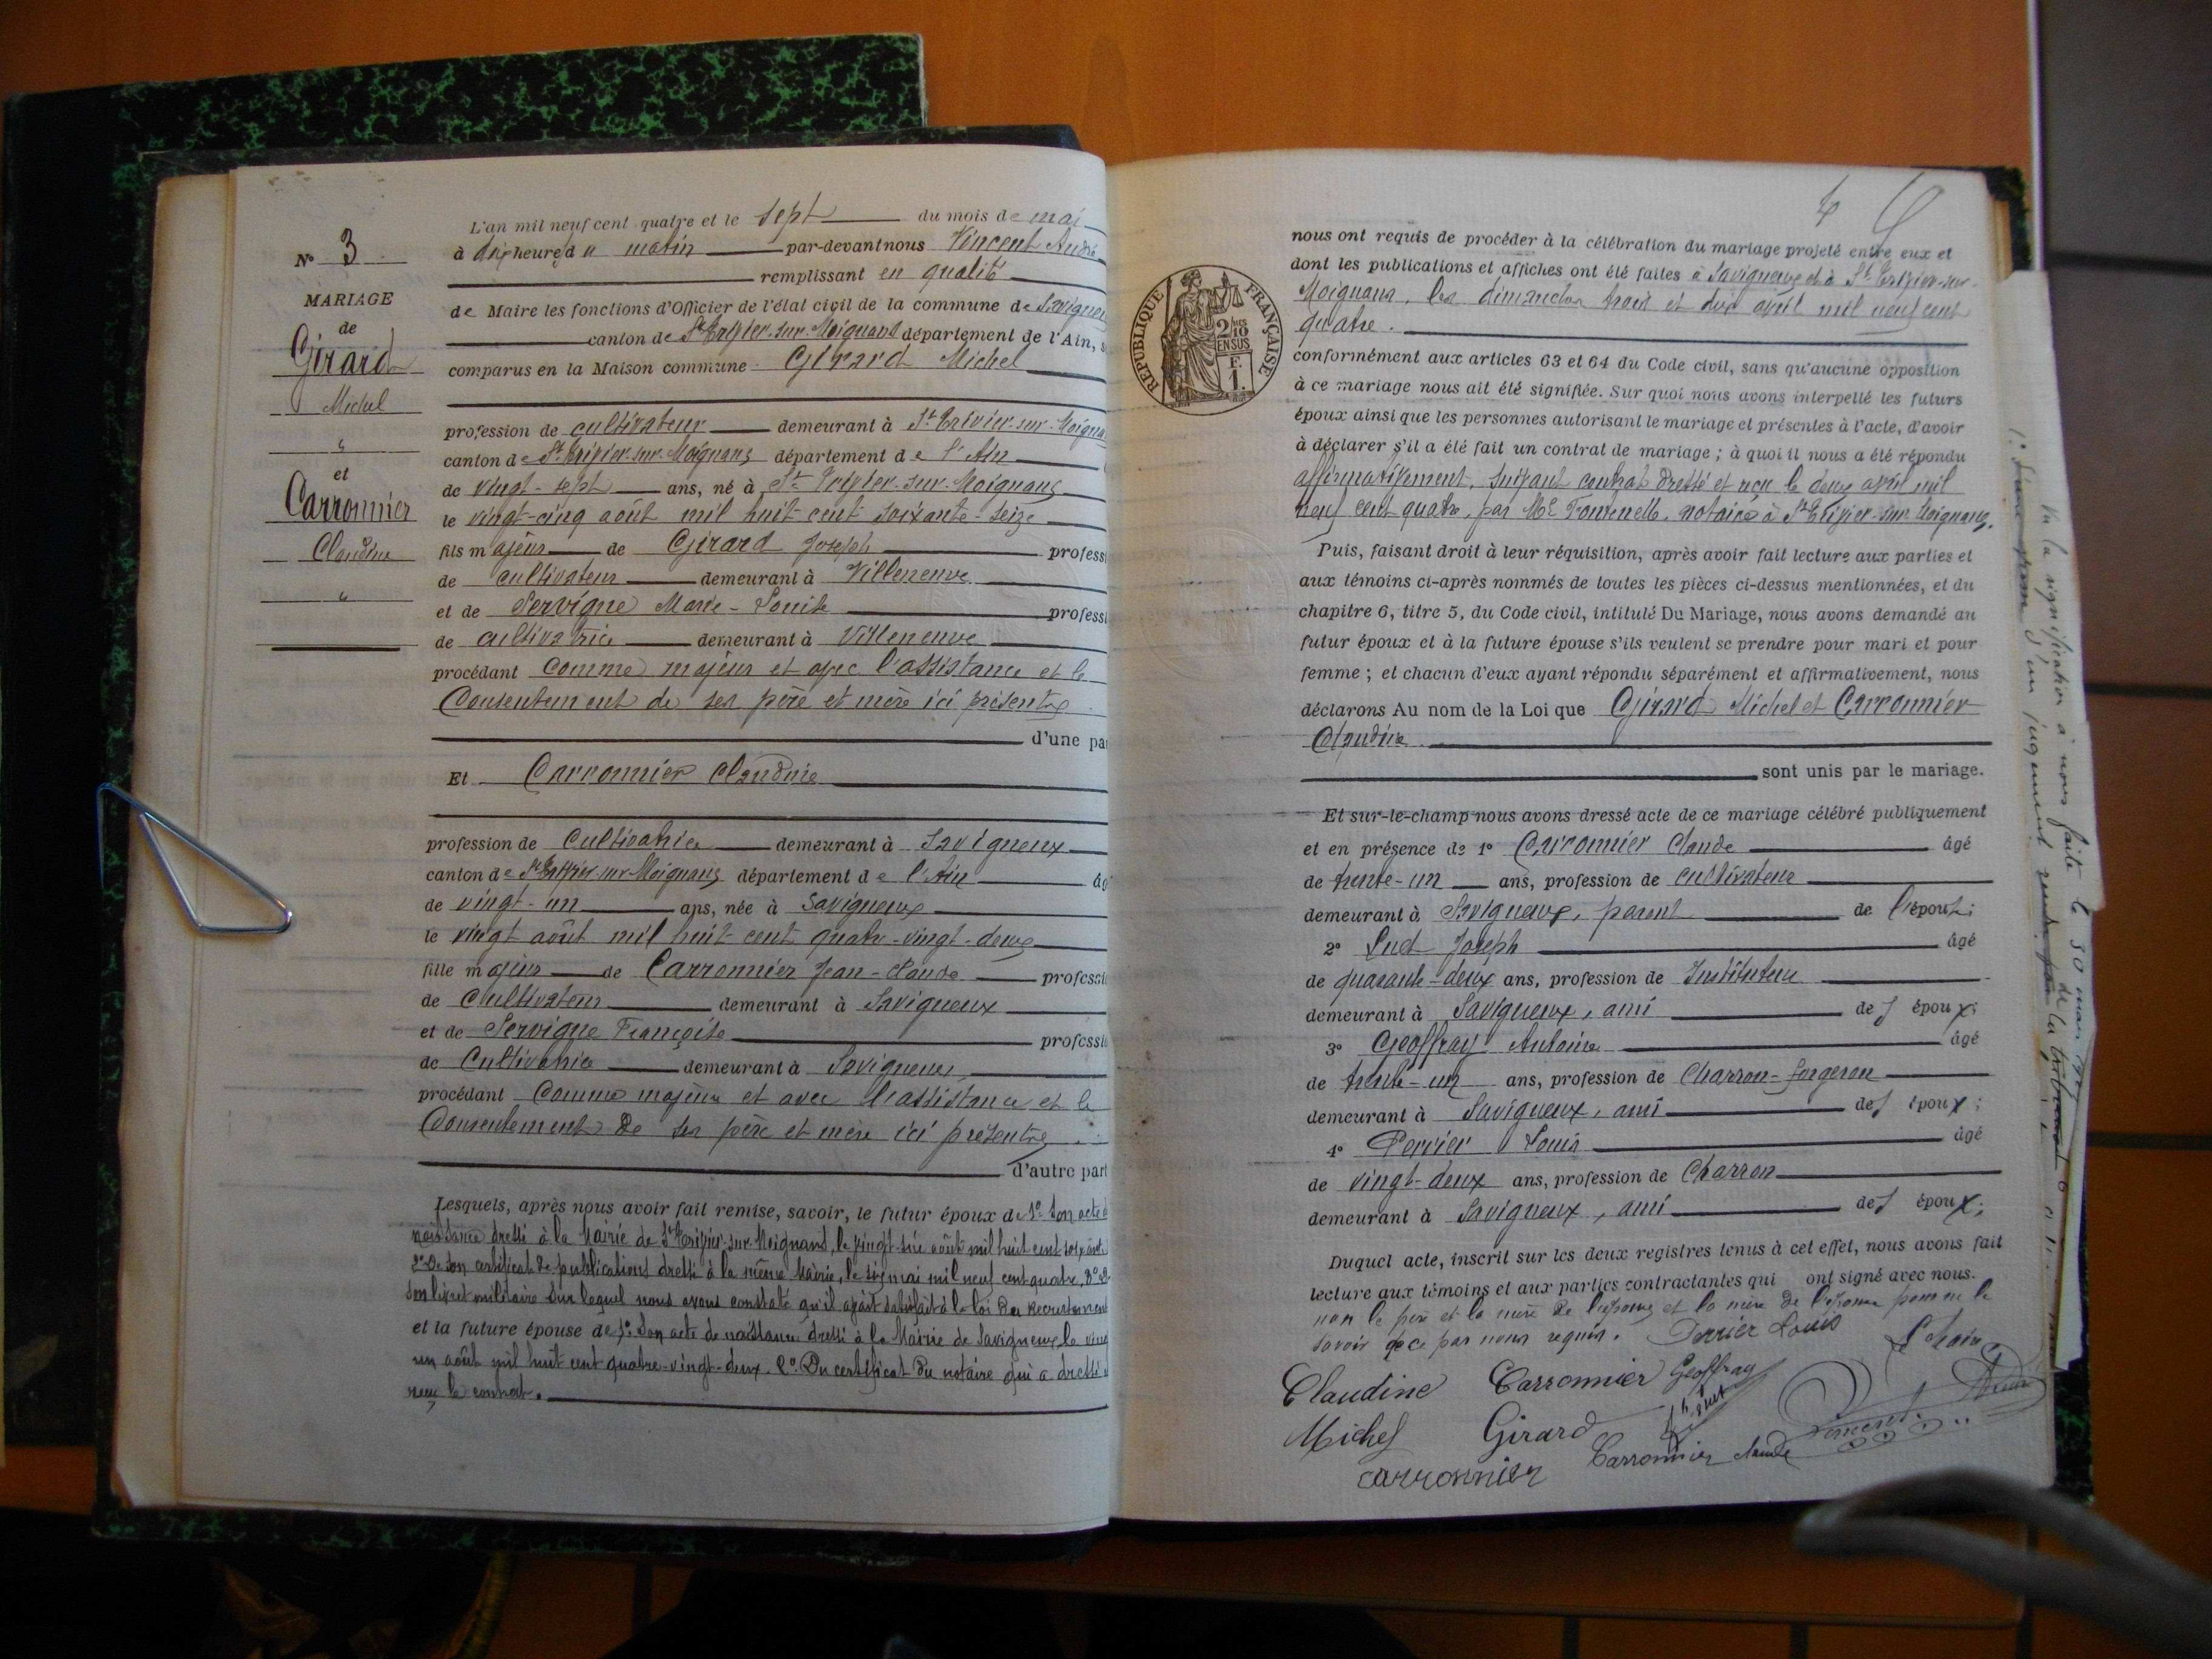 N° 3
MARIAGE
de
Girard
Michel
"
et
Carronnier
Claudine
"
L'an mil neuf cent quatre et le sept du mois de mai
à dix heures du matin par-devant nous Vincent André
remplissant en qualité
de Maire les fonctions d'Officier de l'état civil de la commune de Savigneu
canton de St Trivier-sur-Moignans département de l'Ain, s
comparus en la Maison commune Girard Michel
profession de cultivateur demeurant à St Trivier-sur-Moigna
canton de St Trivier-sur-Moignans département de l'Ain
de vingt-sept ans, né à St Trivier-sur-Moignans
le vingt-cinq août mil huit cent soixante-seize
fils majeur de Girard Joseph professi
de cultivateur demeurant à Villeneuve
et de Servigne Marie-Louise professi
de cultivatrice demeurant à Villeneuve
procédant comme majeur et avec l'assistance et le
consentement de ses père et mère ici présents
d'une pa
Et Carronnier Claudine
profession de Cultivatrice demeurant à Savigneux
canton de St Trivier-sur-Moignans département de l'Ain âg
de vingt-un ans, née à Savigneux
le vingt août mil huit cent quatre-vingt-deux
fille majeure de Carronnier Jean-Claude professi
de Cultivateur demeurant à Savigneux
et de Servigne Françoise professi
de Cultivatrice demeurant à Savigneux
procédant Comme majeure et avec l'assistance et le
Consentement de ses père et mère ici présents
d'autre part
Lesquels, après nous avoir fait remise, savoir, le futur époux de 1° Son acte d
naissance dressé à la Mairie de St Trivier-sur-Moignans, le vingt-six août mil huit cent soixante
2° De son certificat de publications dressé à la même Mairie, le six mai mil neuf cent quatre, 3° d
son livret militaire sur lequel nous avons constaté qu'il avait satisfait à la loi du recrutement
et la future épouse de 1° Son acte de naissance dressé à la Mairie de Savigneux le ving
un août mil huit cent quatre-vingt-deux. 2° Du certificat du notaire qui a dressé
reçu le contrat.
REPUBLIQUE FRANÇAISE
2/10
EN SUS
F.
1.
nous ont requis de procéder à la célébration du mariage projeté entre eux et
dont les publications et affiches ont été faites à Savigneux et à St Trivier-sur-
Moignans, les dimanches trois et dix avril mil neuf cent
quatre.
conformément aux articles 63 et 64 du Code civil, sans qu'aucune opposition
à ce mariage nous ait été signifiée. Sur quoi nous avons interpellé les futurs
époux ainsi que les personnes autorisant le mariage et présentes à l'acte, d'avoir
à déclarer s'il a été fait un contrat de mariage ; à quoi il nous a été répondu
affirmativement, suivant contrat dressé et reçu le deux avril mil
neuf cent quatre, par Me Fontenelle, notaire à St Trivier-sur-Moignans.
Puis, faisant droit à leur réquisition, après avoir fait lecture aux parties et
aux témoins ci-après nommés de toutes les pièces ci-dessus mentionnées, et du
chapitre 6, titre 5, du Code civil, intitulé Du Mariage, nous avons demandé au
futur époux et à la future épouse s'ils veulent se prendre pour mari et pour
femme ; et chacun d'eux ayant répondu séparément et affirmativement, nous
déclarons Au nom de la Loi que Girard Michel et Carronnier
Claudine
sont unis par le mariage.
Et sur-le-champ nous avons dressé acte de ce mariage célébré publiquement
et en présence de 1° Carronnier Claude âgé
de trente-un ans, profession de cultivateur
demeurant à Savigneux, parent de l'épouse;
2° Suet Joseph âgé
de quarante-deux ans, profession de Instituteur
demeurant à Savigneux, ami des époux;
3° Geoffray Antoine âgé
de trente-un ans, profession de Charron-forgeron
demeurant à Savigneux, ami des époux;
4° Perrier Louis âgé
de vingt-deux ans, profession de Charron
demeurant à Savigneux, ami des époux;
Duquel acte, inscrit sur les deux registres tenus à cet effet, nous avons fait
lecture aux témoins et aux parties contractantes qui ont signé avec nous.
non le père et la mère de l'époux et la mère de l'épouse pour ne le
savoir de ce par nous requis. Perrier Louis
Claudine Carronnier Geoffray
Michel Girard Suet Vincent
Carronnier Claude
Carronnier
Vu la signification à nous faite le 30 mars
d'un jugement